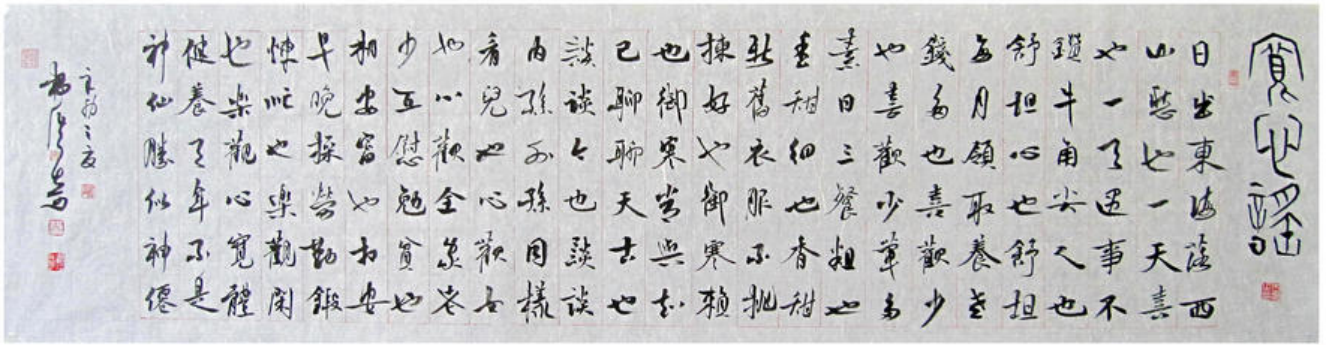 寬心謠
日出東海落西
山愁也一天喜
也一天遇事不
鑽牛角尖人也
舒坦心也舒坦
每月領取養老
錢多也喜歡少
也喜歡少葷多
素日三餐粗也
香甜細也香甜
新舊衣服不挑
揀好也御寒賴
也御寒常與知
已聊聊天古也
談談今也談談
内孫外孫同樣
看兒也心歡女
也心歡全家老
少互慰勉貧也
相安富也相安
早晚操勞勤鍛
煉忙也樂觀閑
也樂觀心寬體
健養天年不是
神仙勝似神僊
辛卯之夏